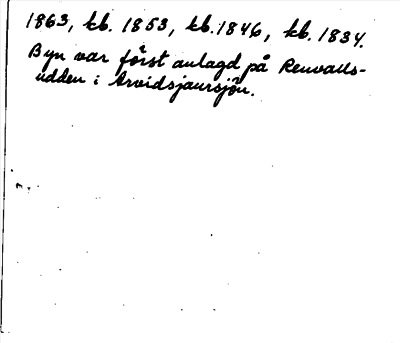 1863, kb. 1853, kb. 1846, kb. 1834.
Byn var först anlagd på Renvalls-
udden i Arvidsjaursjön.